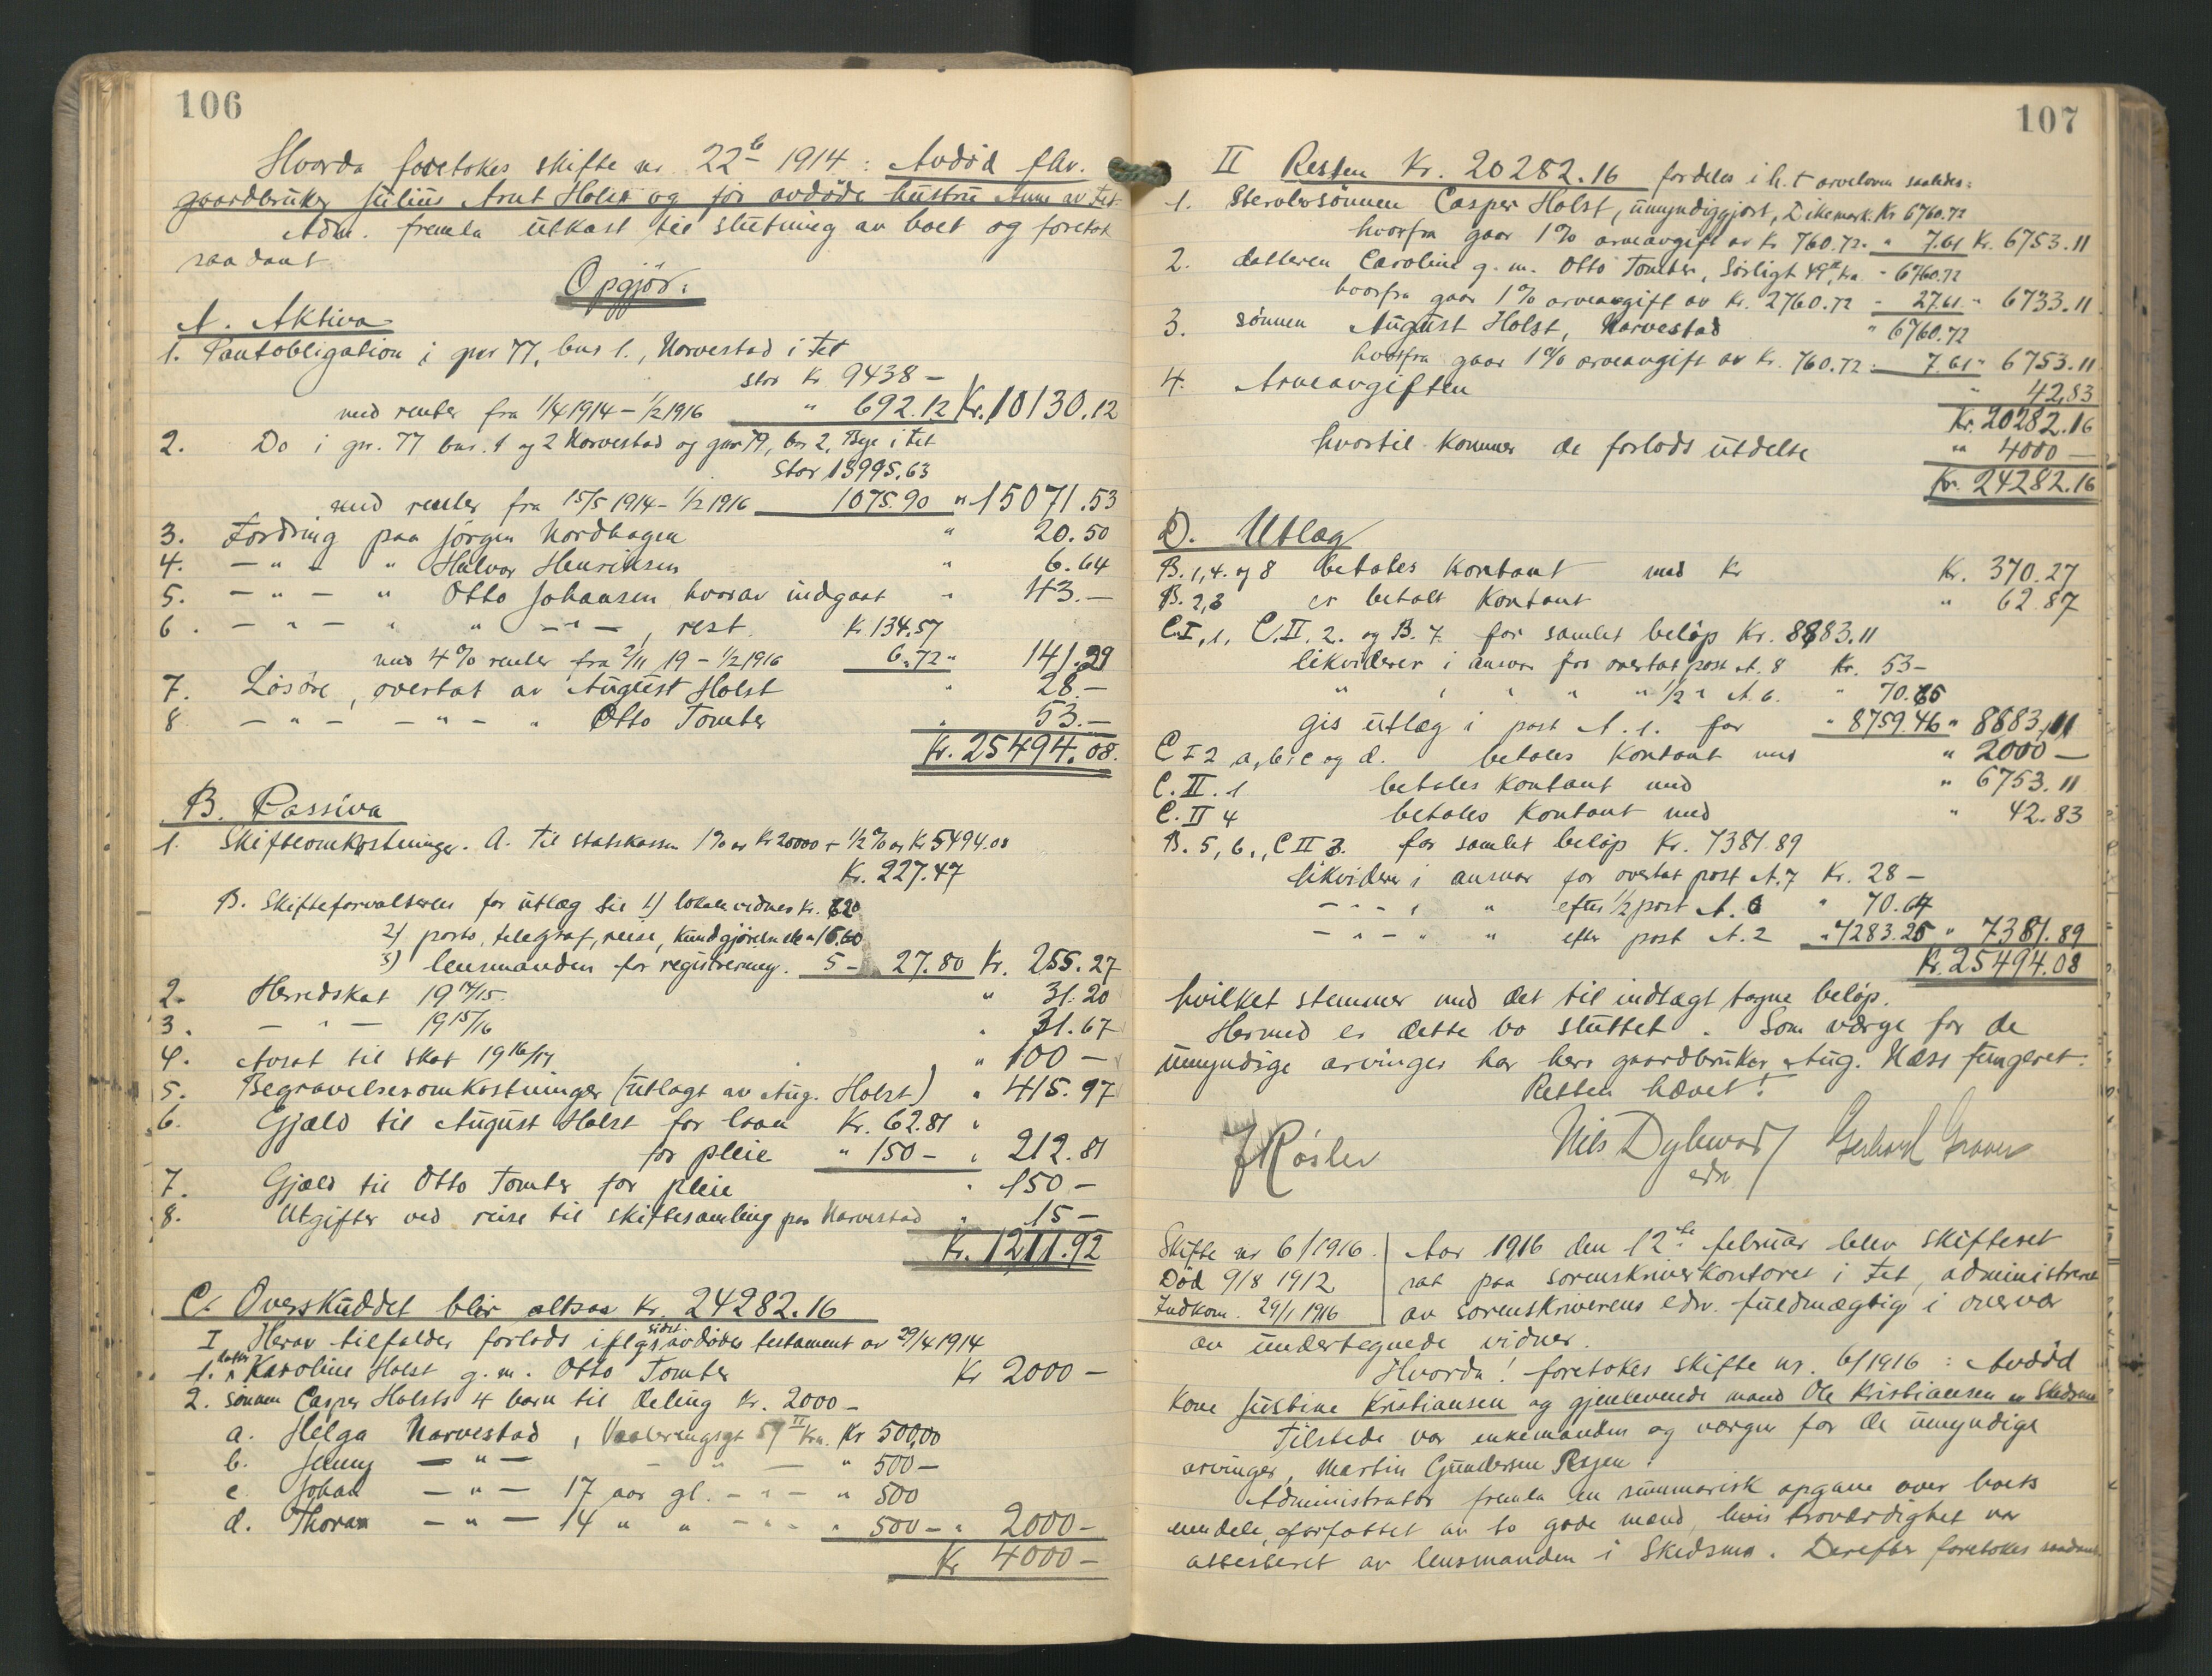 106
Hvorda foretokes skifte nr. 22b 1914: Avdød fhv.
gaardbruker Julius Arnt Holst og før avdøde hustru Anne av Fet.
Adm. fremla utkast til slutning av boet og foretok
saadant
Opgjør:
A. Aktiva
1. Pantobligation i gnr 77, bnr 1., Norvestad i Fet
stor Kr 9438 —
med renter fra 1/4 1914 – 1/2 1916 " 692.12 Kr. 10130.12
2. Do i gr. 77 bnr. 1 og 2 Norvestad og gnr 79, br 2, Bye i Fet
Stor 13995.63
med renter fra 15/5 1914 – 1/2 1916 1075.90 " 15071.53
3. Fordring paa Jörgen Nordhagen " 20.50
4. — " — " Halvor Henriksen " 6.64
5. — " — " Otto Johansen hvorav indgaat " 43.—
6. — " — " " — " —, rest Kr. 134.57
med 4% renter fra 2/11 19 – 1/2 1916 6.72 " 141.29
7. Løsøre, overtat av August Holst " 28.—
8 — " — — " — " Otto Tomter " 53.—
Kr. 25494.08.
B. Passiva
1. Skifteomkostninger. A. Til statskassen 1% av Kr 20000 + 1/2% av Kr 5494.08
Kr. 227.47
B. Skifteforvalteren for utlæg til 1) lokale vidner Kr. 6.20
2) porto, telegraf, reise, kundgjørelse " 16.60
3) lensmanden for registrering. 5 – 27.80 Kr. 255.27
2. Herredskat 1914/15 " 31.20
3. — " — 1915/16 " 31.67
4. Avsat til skat 1916/17 " 100 —
5. Begravelsesomkostninger (utlagt av Aug. Holst) " 415.97
6. Gjæld til August Holst for laan Kr. 62.81 "
for pleie " 150 – " 212.81
7. Gjæld til Otto Tomter for pleie " 150 –
8. Utgifter ved reise til skiftesamling paa Narvestad " 15 –
Kr. 1211.92
C. Overskuddet blir altsaa Kr. 24282.16
I Herav tilfalder forlods iflg. sidst avdødes testament av 29/4 1914
1. datter Karoline Holst g. m. Otto Tomter Kr 2000 –
2. sönnen Casper Holsts 4 barn til deling Kr. 2000 –
a. Helga Narvestad, Vaaleringsgt 57 II Kra. Kr 500,00
b. Jenny — " — — " — " 500 –
c. Johan — " — 17 aar gl. – " – " 500
d. Thoran — " — 14 " " – " – " 500 – " 2000 –
Kr 4000 –
107
II Resten Kr. 20282.16 fordeles i h. t arveloven saaledes:
1. Stervbersönnen Casper Holst, umyndiggjort, Dikemark. Kr 6760.72
hvorfra gaar 1% arveavgift av Kr 760.72. " 7.61 Kr. 6753.11
2. datteren Caroline g. m. Otto Tomter, Sørligt 49 II, Kra. " 6760.72
hvorfra gaar 1% arveavgift av Kr. 2760.72 " 27.61 " 6733.11
3. sönnen August Holst, Narvestad " 6760.72
hvorfra gaar 1% arveavgift av Kr. 760.72 " 7.61 " 6753.11
4. Arveavgiften " 42,83
Kr. 20282.16
hvortil kommer de forlods utdelte " 4000 —
Kr. 24282.16
D. Utlæg
B. 1, 4. og 8 betales kontant med Kr Kr. 370.27
B. 2, 3 er betalt kontant " 62.87
C.I, 1, C.II. 2. og B. 7. for samlet beløp Kr. 8883.11
likviderer i ansvar for overtat post A. 8 Kr. 53 –
" " " " " 1/2 " A. 6. " 70.65
gis utlæg i post A. 1. for " 8759.46 " 8883,11
C I 2 a, b, c og d. betales kontant med " 2000 —
C. II. 1 betales kontant med " 6753.11
C. II 4 betales kontant med " 42.83
B. 5, 6., C II 3. for samlet beløp Kr. 7381.89
likviderer i ansvar for overtat post A. 7 Kr. 28 –
– " – " " efter 1/2 post A. 6 " 70.64
– " – " " efter post A. 2 " 7283.25 " 7381.89
Kr. 25494.08
hvilket stemmer med det til indtægt tagne beløp.
Hermed er dette bo sluttet. Som værge for de
umyndige arvinger har herr gaardbruker Aug. Næss fungeret.
Retten hævet!
J Røsler Nils Dybwad Gerhard Graver
edsv
Skifte nr 6/1916.
Död 9/8 1912
Indkom. 29/1 1916
Aar 1916 den 12te februar blev skifteret
sat paa sorenskriverkontoret i Fet, administreret
av sorenskriverens edsv. fuldmægtig i overvær
av undertegnede vidner.
Hvorda! foretokes skifte nr. 6/1916: Avdöd
kone Justine Kristiansen og gjenlevende mand Ole Kristiansen av Skedsmo
Tilstede var enkemanden og værgen for de umyndige
arvinger, Martin Gundersen
Administrator fremla en summarisk opgave over boets
eiendele, forfattet av to gode mænd, hvis troværdighet var
attesteret av lensmanden i Skedsmo. Derefter foretokes saadant